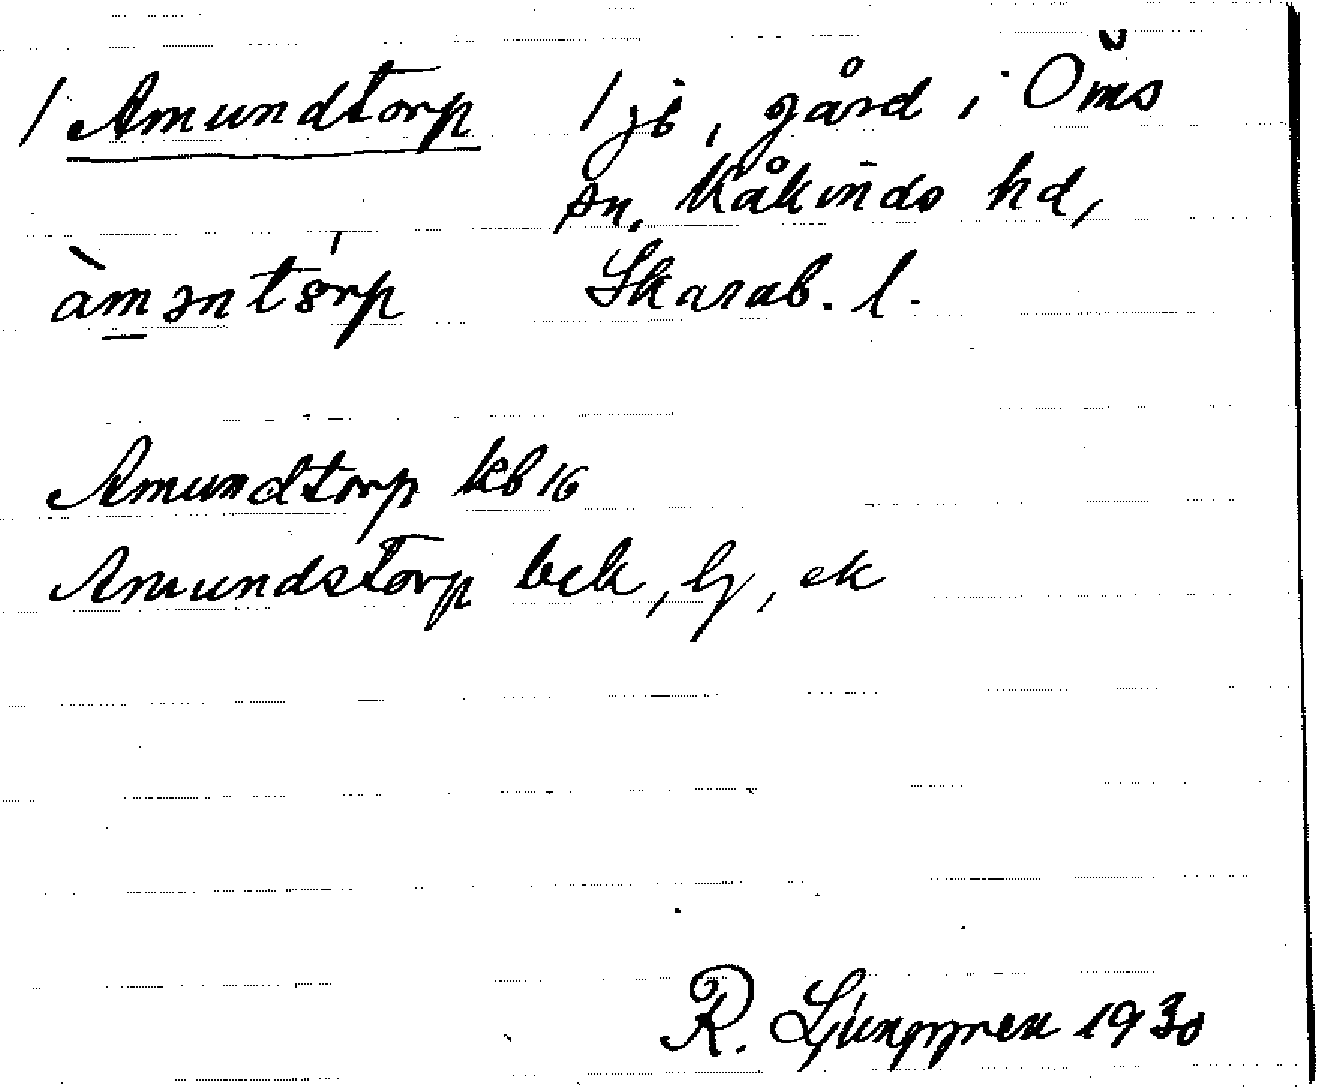 / Amundtorp / jb, gård i Öms
sn. Kåkinds hd,
àməntərp Skarab. l.
Amundtorp kb 16
Amundstorp bek, lg, ek
R. Ljunggren 1930